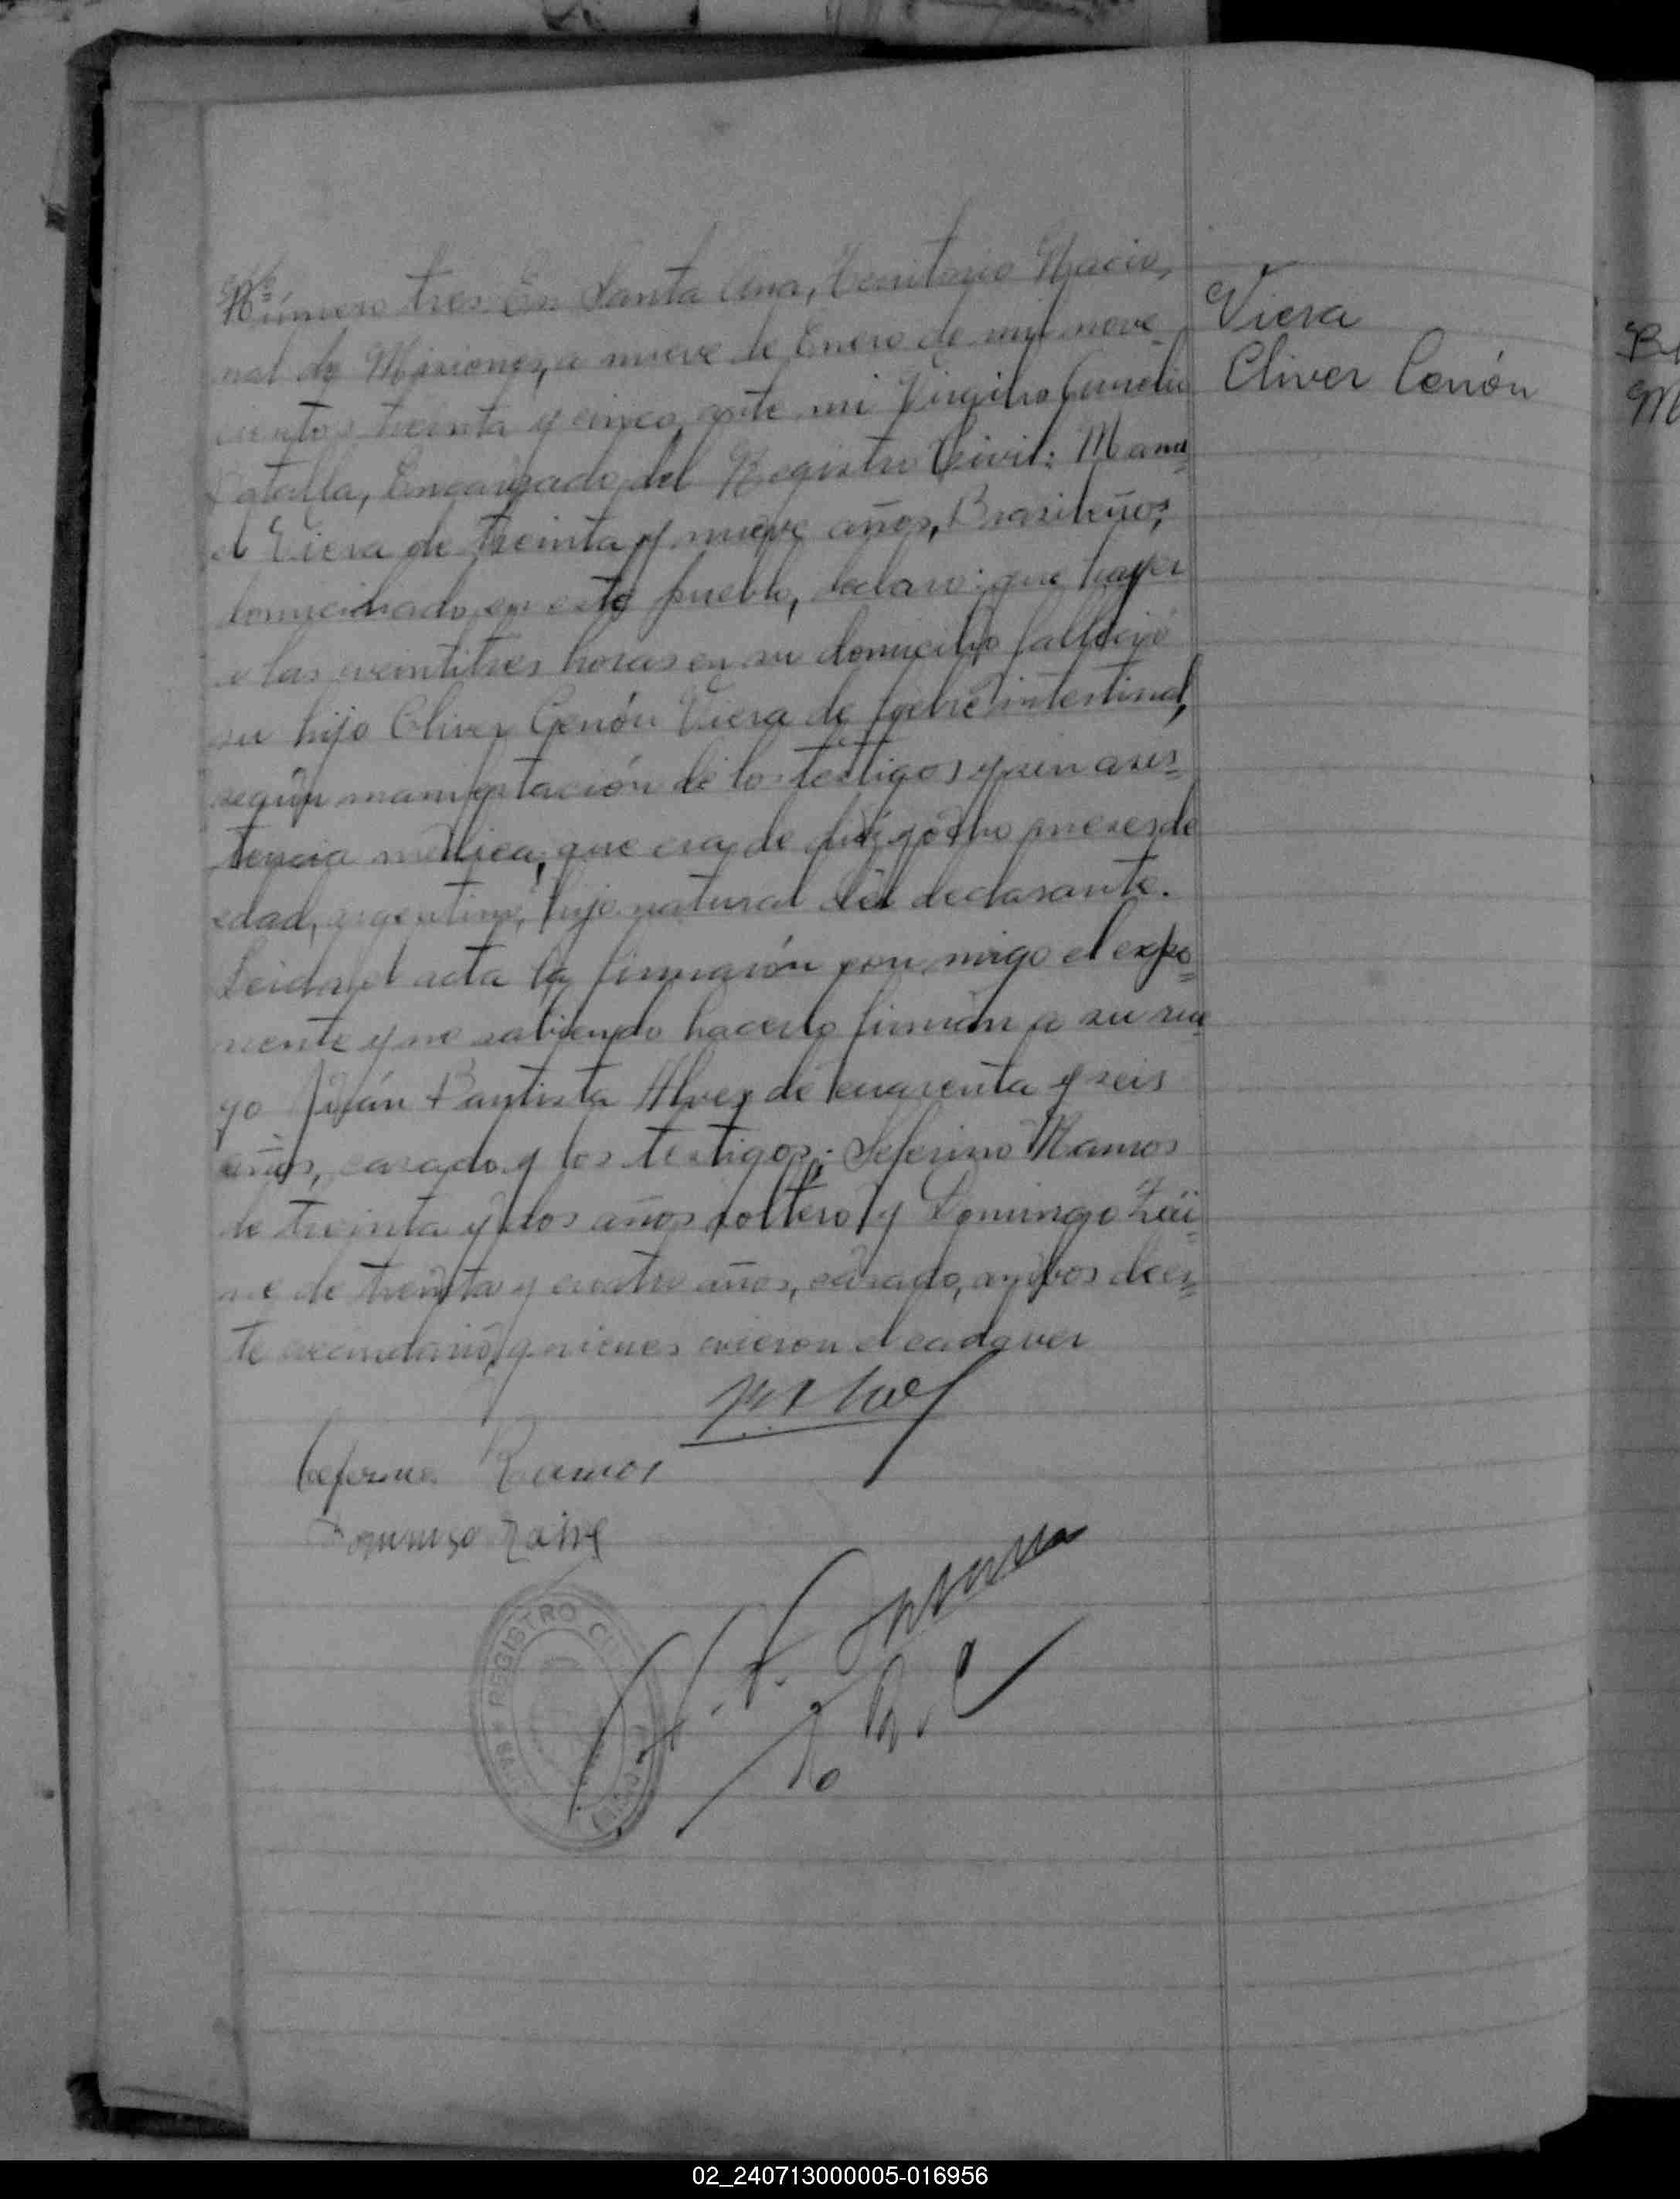 Número tres En Santa Ana, Territorio Nacio-
nal de Misiones, a nueve de Enero de mil nove-
cientos treinta y cinco, ante mi Virgilio Aurelio
Batalla, Encargado del Registro Civil: Manu-
el Viera de treinta y nueve años, Brasileño,
domiciliado en este pueblo, declaro: que hayer
a las veintitres horas en su domicilio fallecio
su hijo Cliver Cenón Viera de fiebre intestinal,
según manifestación de los testigos y sin asis-
tencia medica, que era de diez y ocho meses de
edad, argentino, hijo natural del declarante.
Leida el acta la firmarón con migo el expo-
nente y no sabiendo hacerlo firmán a su rue-
go Juán Bautista Alvez de cuarenta y seis
años, casado y los testigos: Seferino Ramos
de treinta y dos años soltero y Domingo Zái-
re de treinta y cuatro años, casado, ambos de es-
te vecindario, quienes vieron el cadaver
Viera
Cliver Cenón
Ceferino Ramos
Domingo
REGISTRO CIVIL
Be
M
02_240713000005-016956